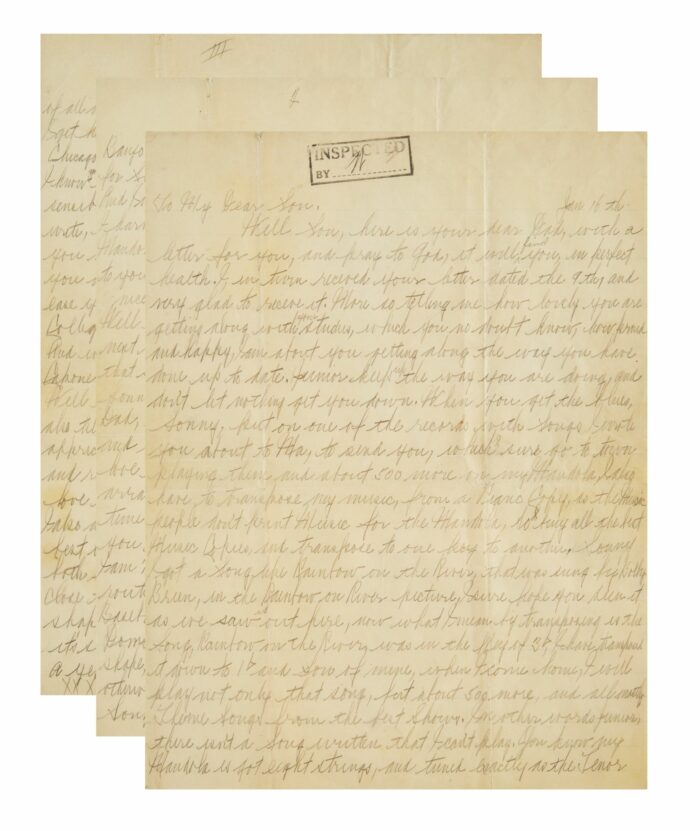 III
2
INSPECTED
BY
To My Dear Son. Jan 16 th.
Well Son, here is your dear Dad, with a
letter for you, and pray to God, it will find you, in perfect
health. I in turn received your letter dated the 9th, and
very glad to receive it. More so telling me how lovely you are
getting along with your studies, which you no doubt know, how proud
and happy, I am about you getting along the way you have
done up to date. Junior keep up the way you are doing, and
don't let nothing get you down. When you get the blues,
Sonny, put on one of the records with songs I wrote
you about to Ma, to send you, which sure go to town
playing them and about 500 more on my Mandola, I also
have to transpose my music, from a Piano Copy, as the Music
people don't print Music for the Mandola, so I buy all the best
Music Copies, and transpose to one key to another. Sonny
I got a song the Rainbow on the River, that was sung by Bobby
Breen, in the Rainbow on River picture, sure hope you seen it
as we saw it out here, now what I mean by transposing is the
song, Rainbow on the River was in the Key of
it down to and Son of mine, when I come home, I will
play not only that song, but about 500 more, and all mostly
Theme Songs from the best Shows. In other words Junior,
there isn't a song written that I can't play. You know my
Mandola is got eight strings, and tuned exactly as the Tenor
Banjo
for
And
I
Mandol
to you
nice
Well
next
that
Dad,
and
love
time
you
Fam
Baseb
shape,
Son,
of all
I get
Chicago
I know
write,
you
you
ease
Colleg
And
Capone
Well
also
apprec
and
love
I also
best
both
close
shap
it's
a
XXX